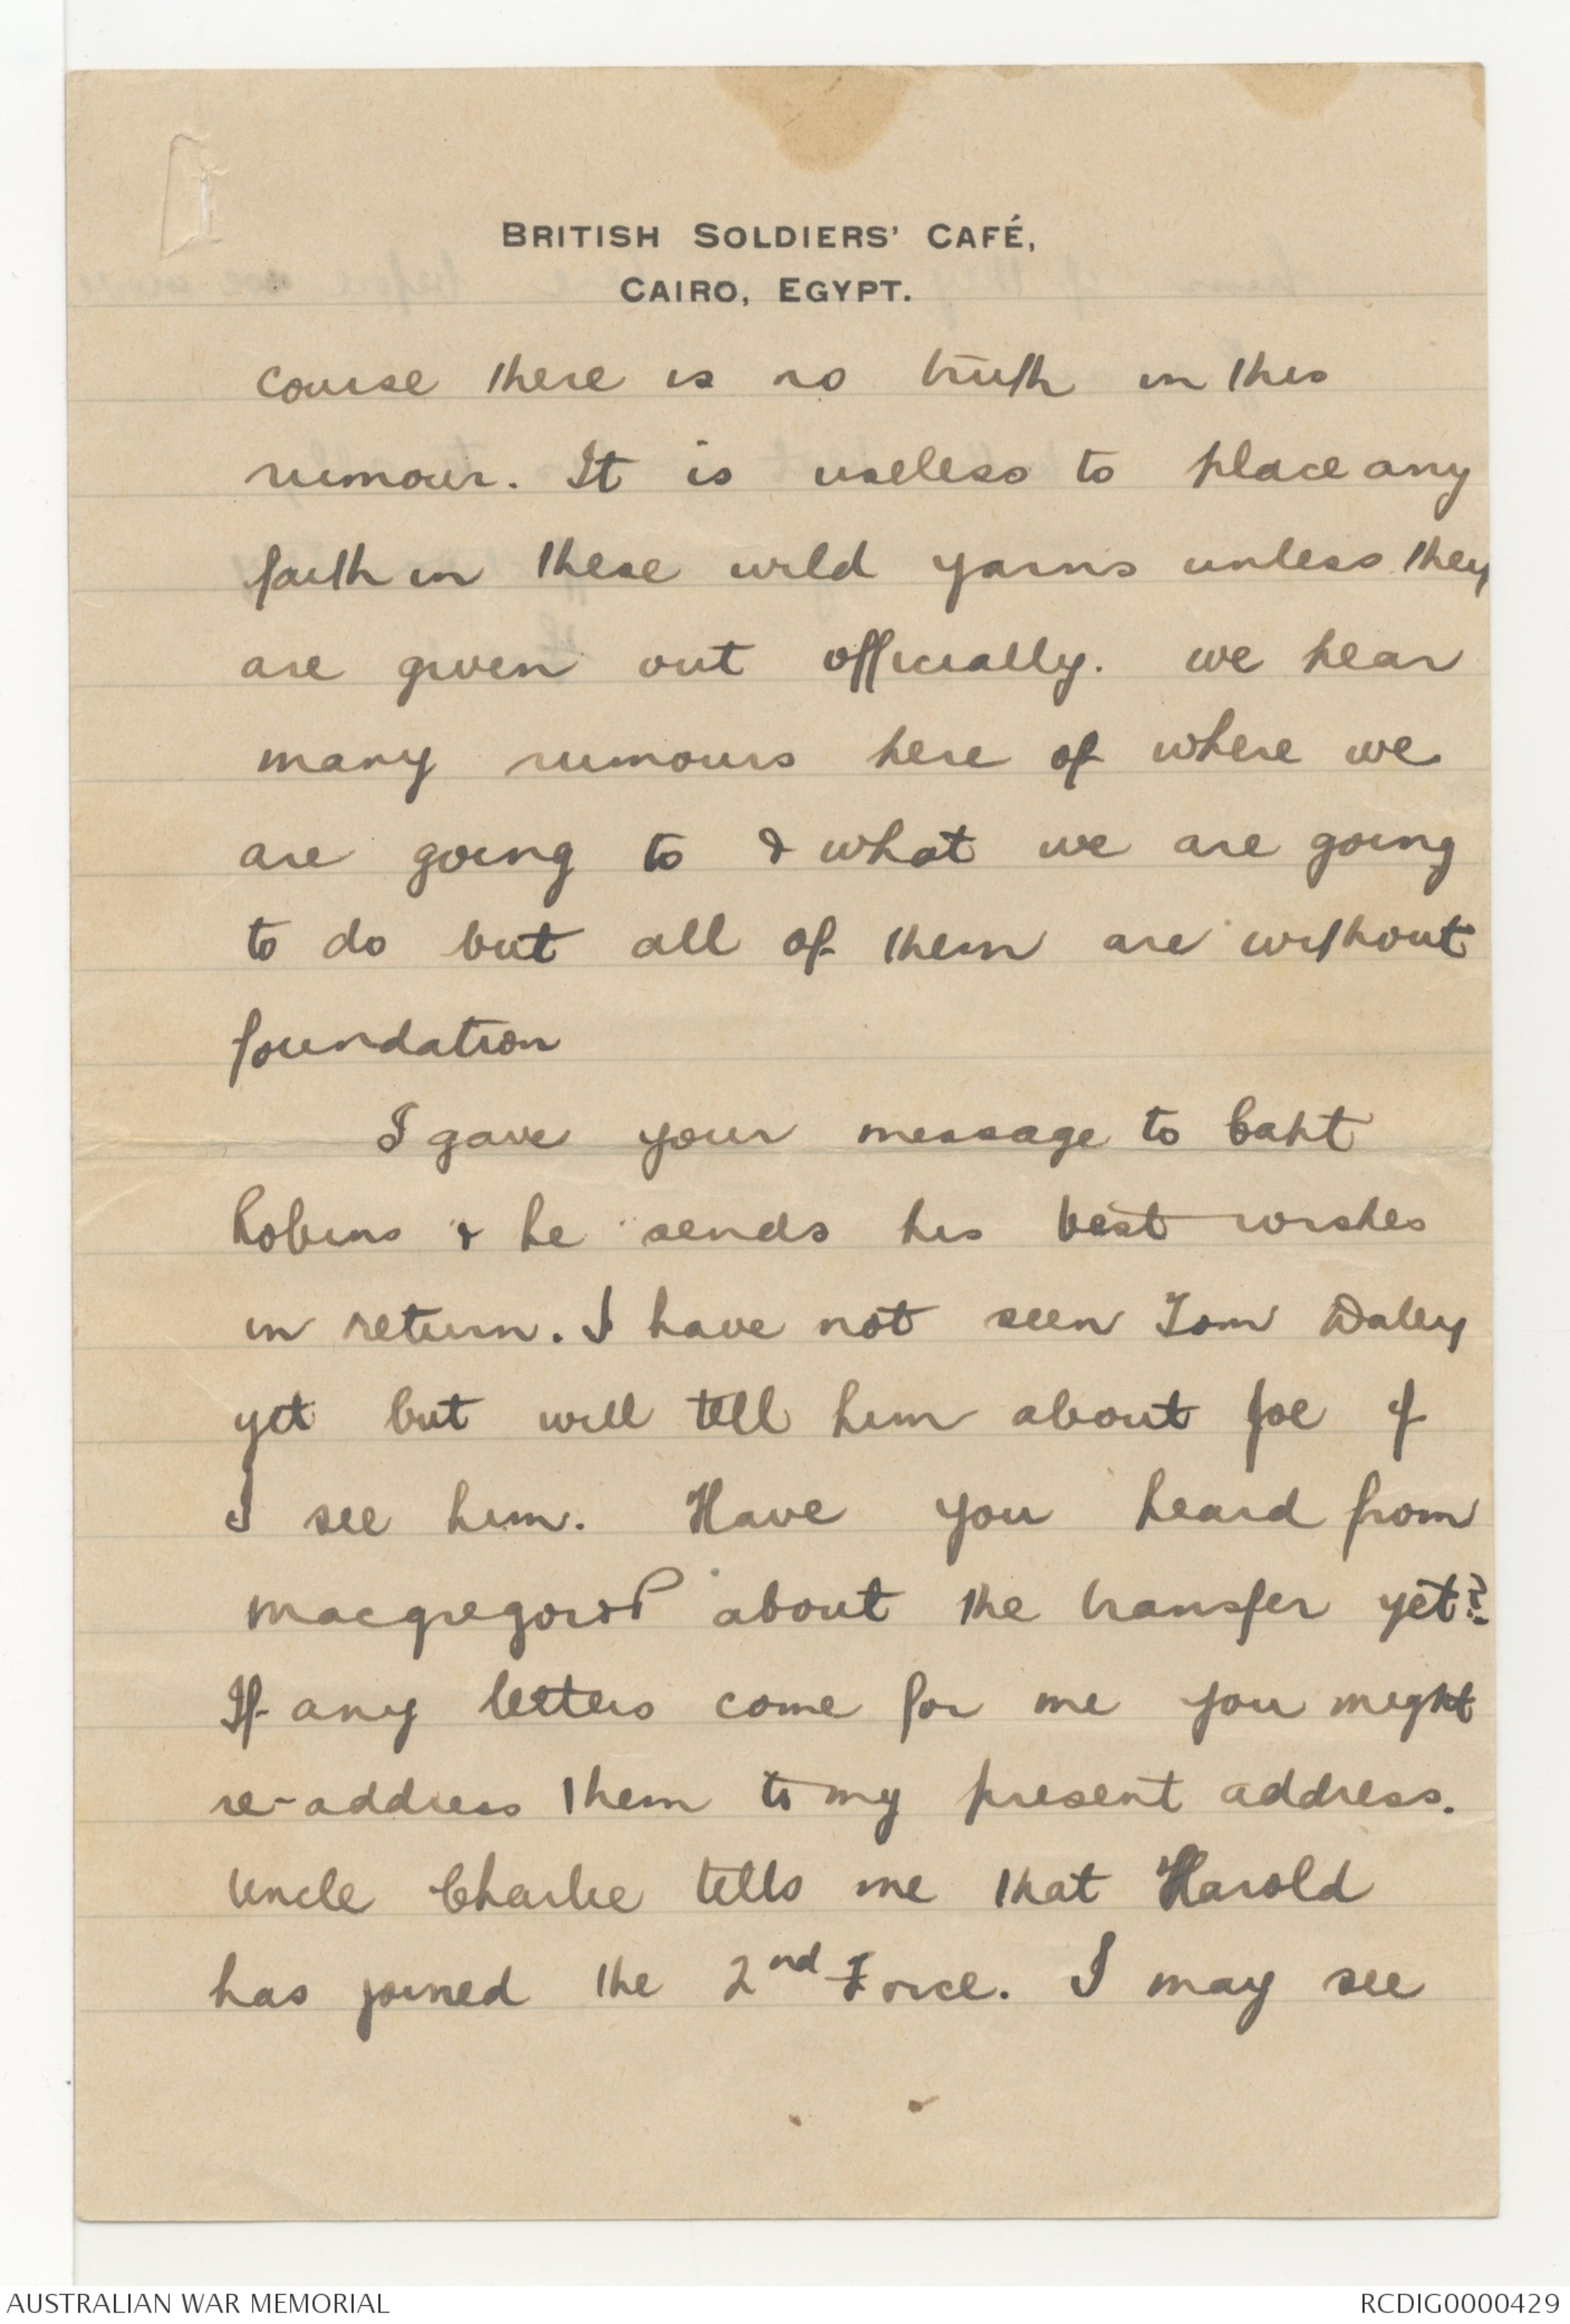 BRITISH SOLDIERS' CAFÉ,
CAIRO, EGYPT.
course there is no truth in this
rumour. It is useless to place any
faith in these wild yarns unless they
are given out officially. we hear
many rumours here of where we
are going to & what we are going
to do but all of them are without
foundation
I gave your message to Capt
Hobins & he sends his best wishes
in return. I have not seen Tom Daley
yet but will tell him about Joe if
I see him. Have you heard from
about the transfer yet?
If any letters come for me you might
re-address them to my present address.
Uncle Charlie tells me that Harold
has joined the 2nd Force. I may see
AUSTRALIAN WAR MEMORIAL
RCDIG0000429